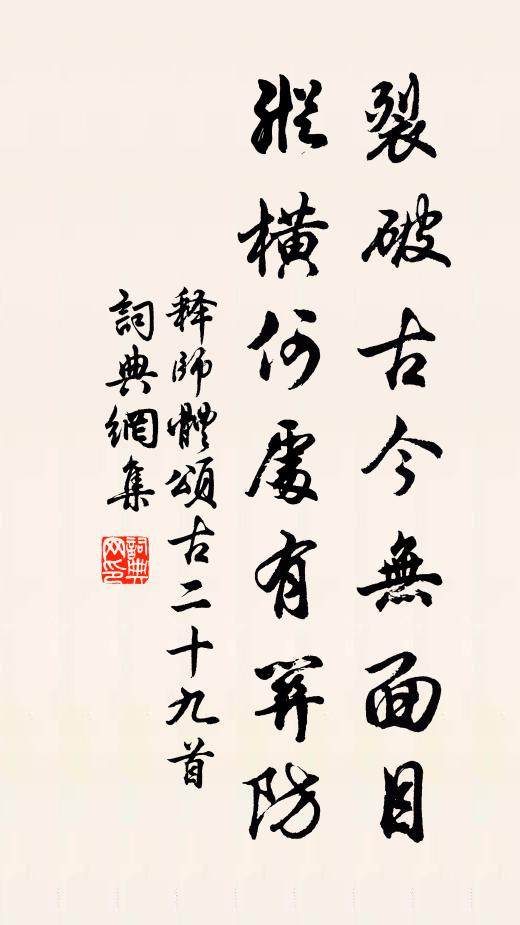 裂破古今無面目
縱橫何處有關防
释師體頌古二十九首
詞典網集
詞典
网印